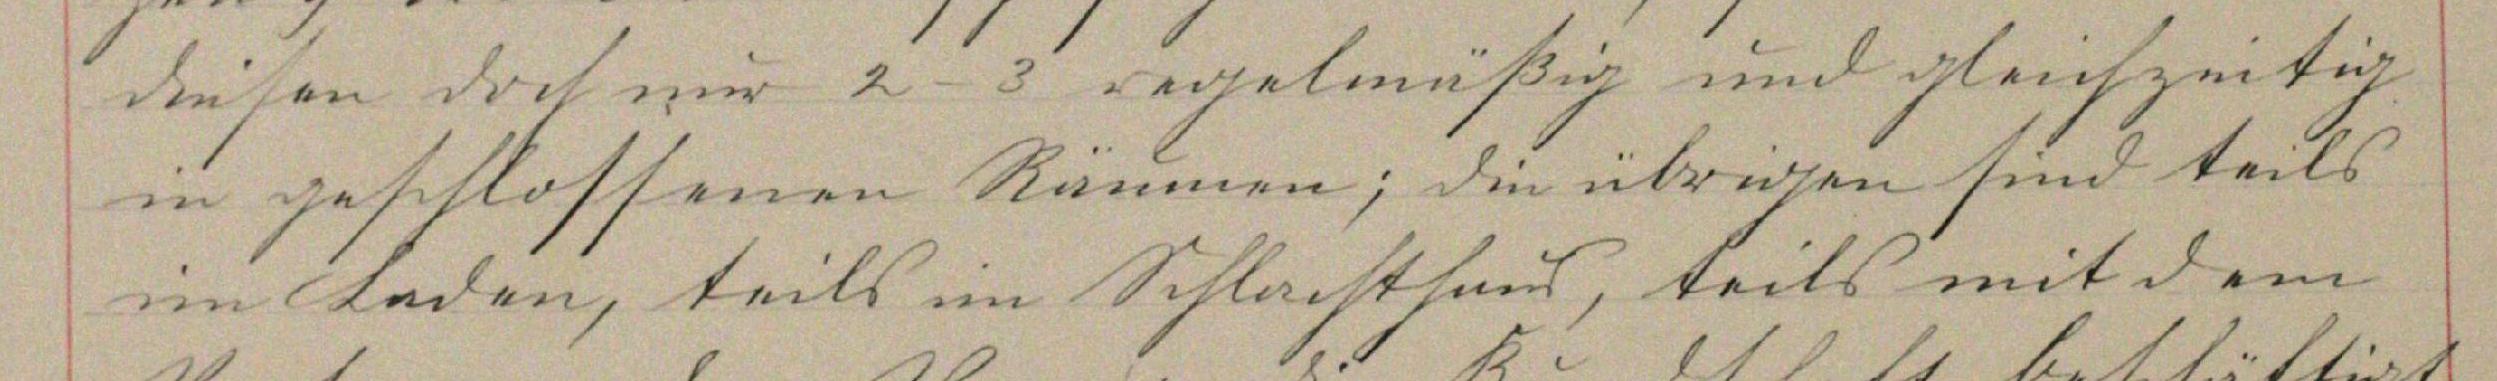 diesen doch nur 2-3 regelmäßig und gleichzeitig
in geschlossenen Räumen; die übrigen sind teils
im Laden, teils im Schlachthaus, teils mit dem
beschäftigt